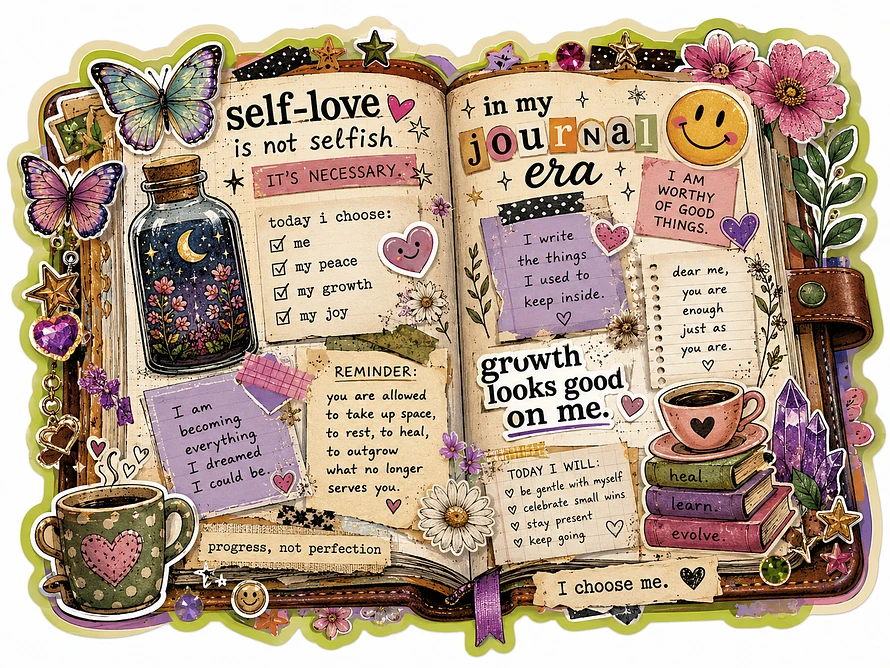 self-love
is not selfish
IT'S NECESSARY.
today i choose:
me
my peace
my growth
my joy
I am
becoming
everything
I dreamed
I could be.
REMINDER:
you are allowed
to take up space,
to rest, to heal,
to outgrow
what no longer
serves you.
progress, not perfection
in my
journal
era
I AM
WORTHY
OF GOOD
THINGS.
I write
the things
I used to
keep inside.
dear me,
you are
enough
just as
you are.
growth
looks good
on me.
TODAY I WILL:
be gentle with myself
celebrate small wins
stay present
keep going
heal.
learn.
evolve.
I choose me.